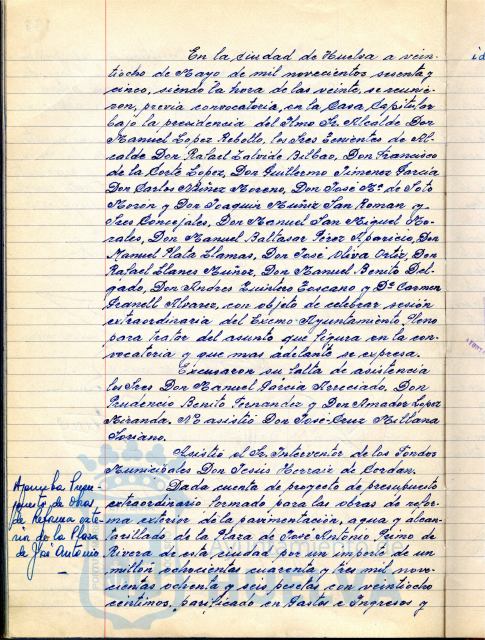 En la Ciudad de Huelva a vein-
tiocho de Mayo de mil novecientos sesenta y
cinco, siendo la hora de las veinte, se reunie-
ron, previa convocatoria, en la Casa Capitular
bajo la presidencia del Ilmo Sr. Alcalde Don
Manuel Lopez Rebollo, los Sres Tenientes de Al-
calde Don Rafael Zalvide Bilbao, Don Francisco
de la Corte Lopez, Don Guillermo Jimenez Garcia
Don Carlos Muñiz Moreno, Don José Mª de Soto
Morón y Don Joaquin Muñiz San Roman y
Sres Concejales, Don Manuel San Miguel Mo-
rales, Don Manuel Baltasar Pérez Aparicio, Don
Manuel Plata Llamas, Don José Oliva Ortiz, Don
Rafael Llanes Muñoz, Don Manuel Benito Del-
gado, Don Andres Quintero Toscano y Dª Carmen
Alvarez, con objeto de celebrar sesión
extraordinaria del Excmo Ayuntamiento Pleno
para tratar del asunto que figura en la con-
vocatoria y que mas adelante se expresa.
Excusaron su falta de asistencia
los Sres Don Manuel Garcia Don
Prudencio Benito Fernandez y Don Amador Lopez
Miranda. No asistio Don José Cruz Millana
Soriano.
Asistió el Sr. Interventor de los Fondos
Municipales Don Jesús Herraiz de Cerdan.
Dado cuenta de proyecto de presupuesto
extraordinario formado para las obras de refor-
ma exterior de la pavimentación, agua y alcan-
tarillado de la Plaza de José Antonio Primo de
Rivera de esta ciudad por un importe de un
millon ochocientas cuarenta y tres mil nove-
cientas ochenta y seis pesetas con veintiocho
centimos, parificado en Gastos e Ingresos y
Aprueba Presu-
puesto de obras
de Reforma exte-
rior de la Plaza
de José Antonio